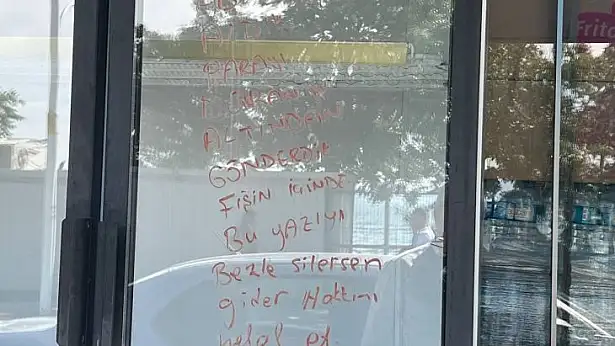 PARAYI
ALTINDAN
GÖNDERDİK
FİŞİN İÇİNDE
BU YAZIYI
Bezle silersen
gider Hakkını
helal et.
Frito